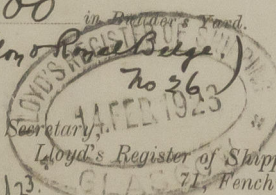 00
in Builder's Yard.
Royal Belge)
No 26
LLOYD'S REGISTER OF SHIPPING
14 FEB 1923
Secretary,
Lloyd's Register of Shipp
71, Fench
123.